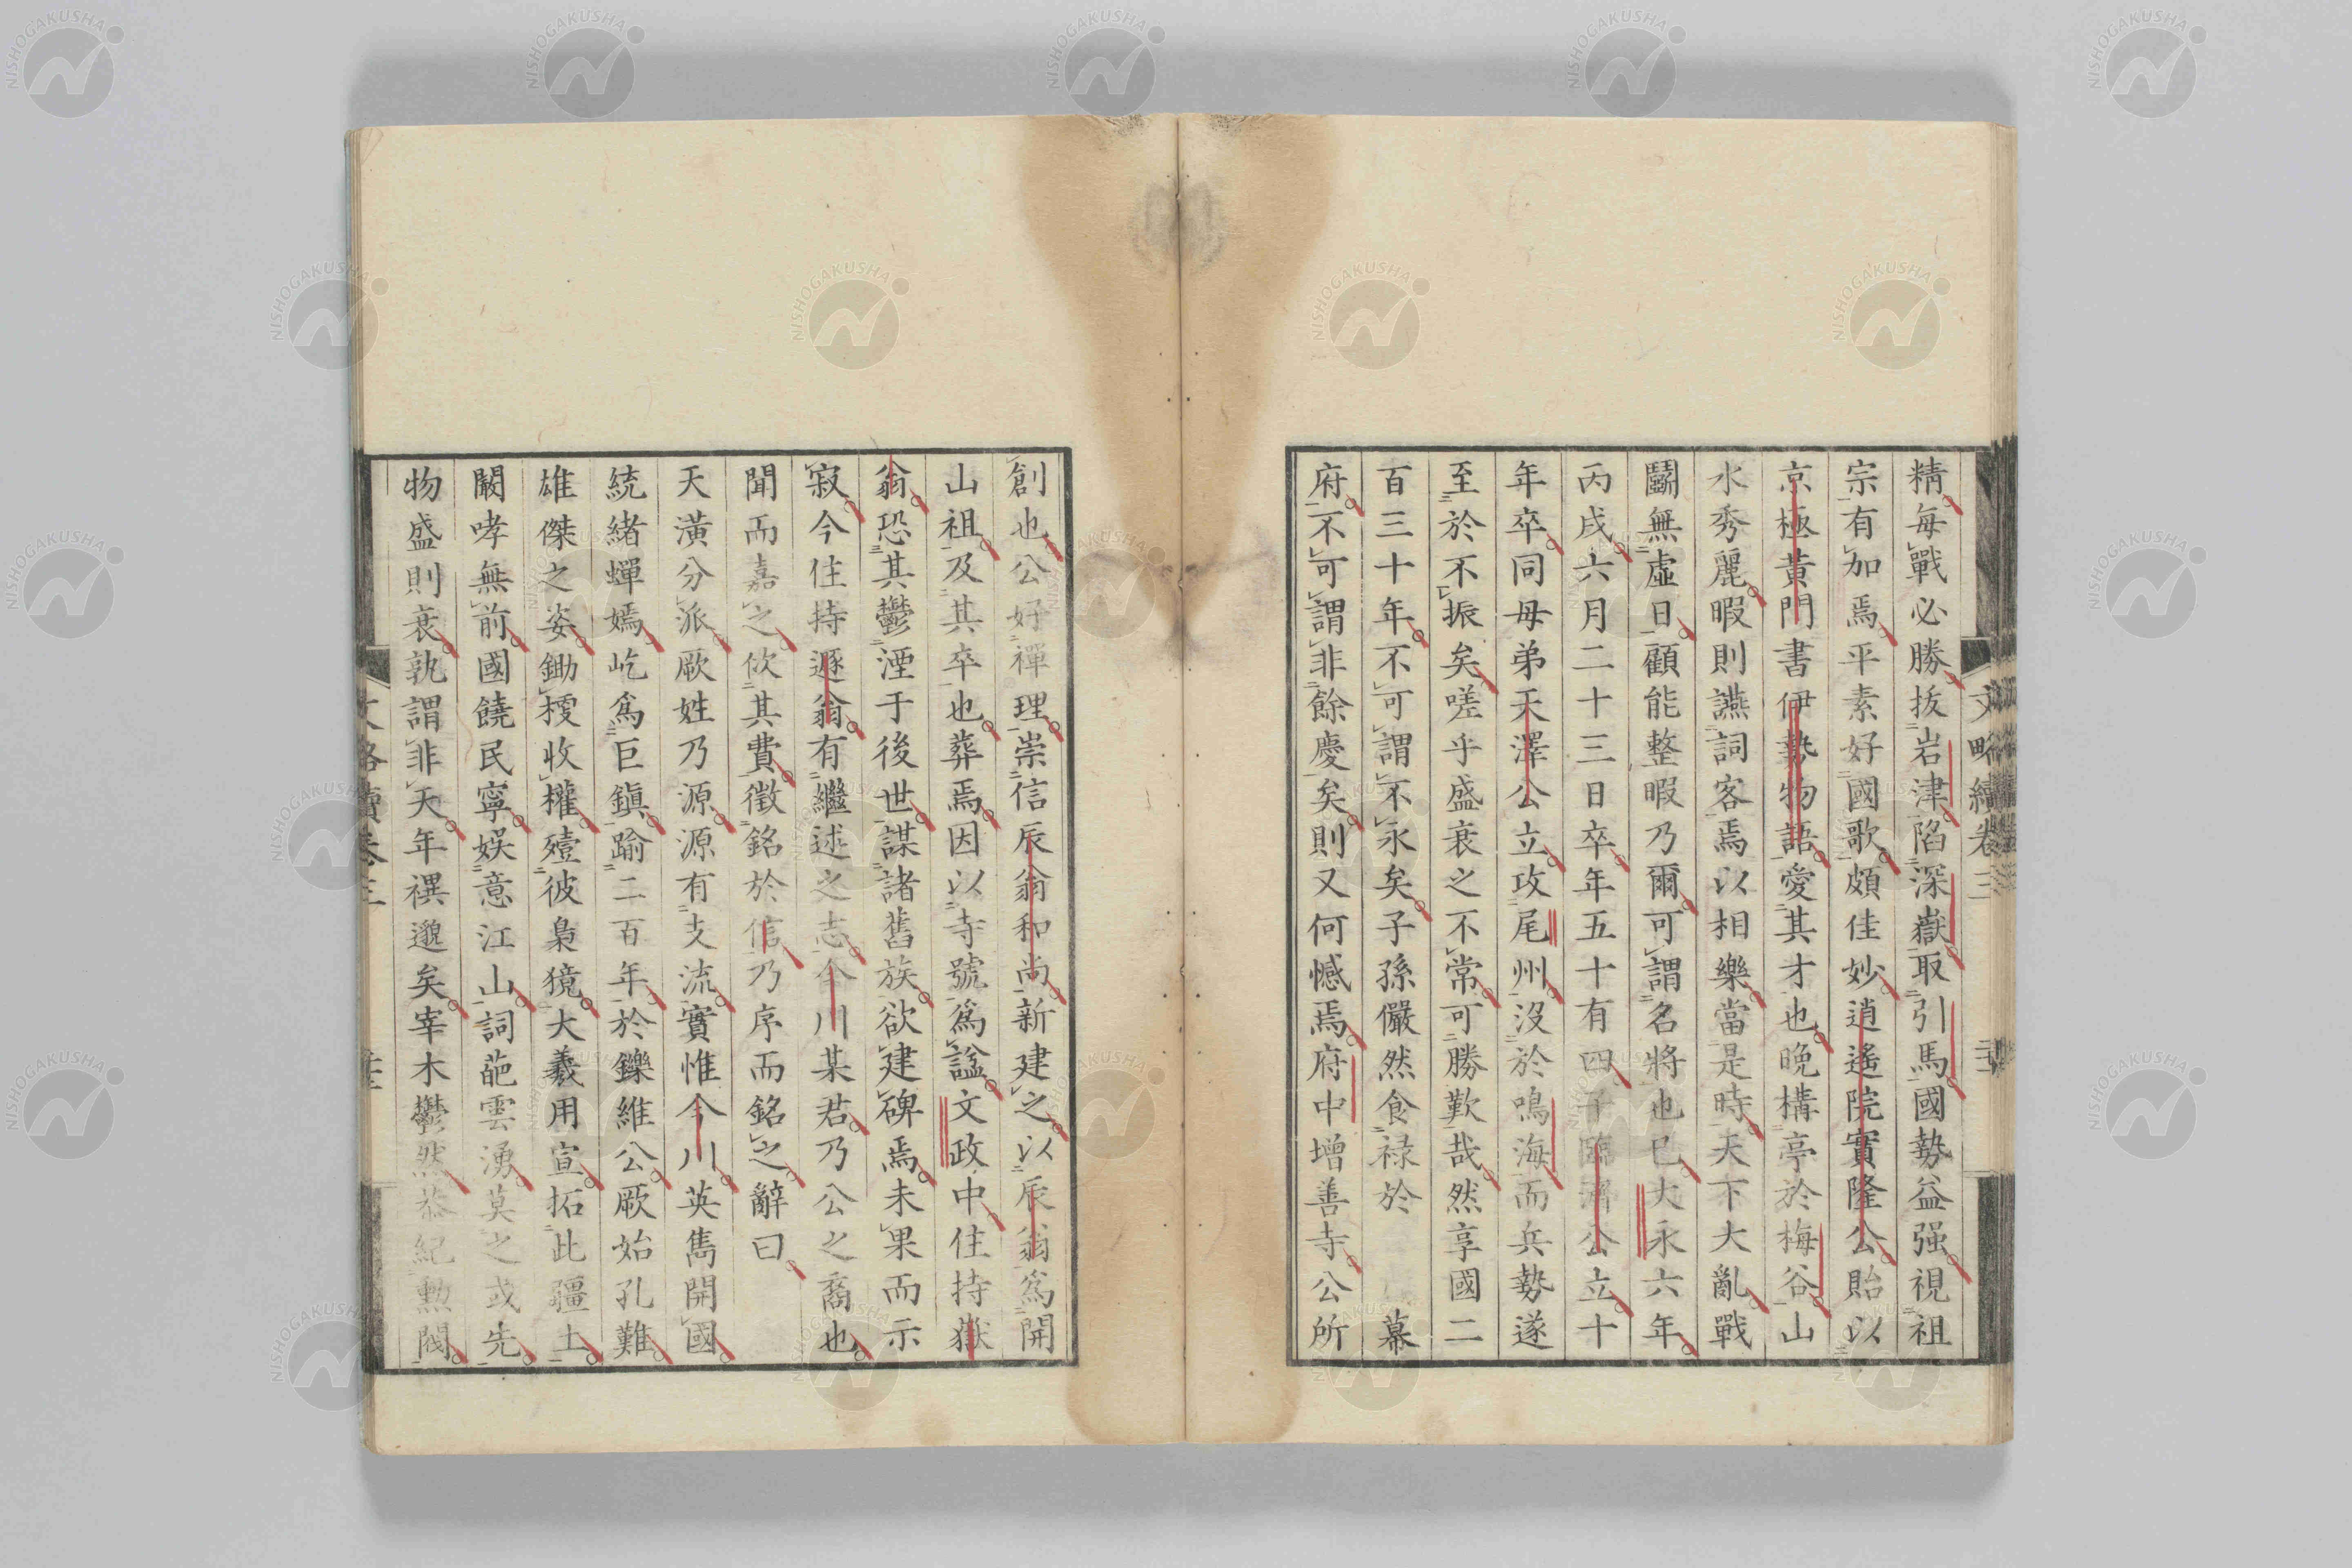 精每戰必勝拔岩津陷深嶽取引馬國勢益强視祖
宗有加焉平素好國歌頗佳妙逍遙院實隆公貽以
京極黃門書伊勢物語愛其才也晚構亭於梅谷山
水秀麗暇則讌詞客焉以相樂當是時天下大亂戰
鬭無虛日顧能整暇乃爾可謂名將也已大永六年
丙戌六月二十三日卒年五十有四子臨濟公立十
年卒同母弟天澤公立攻尾州沒於鳴海而兵勢遂
至於不振矣嗟乎盛衰之不常可勝歎哉然享國二
百三十年不可謂不永矣子孫儼然食禄於 幕
府不可謂非餘慶矣則又何憾焉府中增善寺公所
文略續卷三
創也公好禪理崇信辰翁和尚新建之以辰翁爲開
山祖及其卒也葬焉因以寺號爲諡文政中住持嶽
翁恐其鬱湮于後世謀諸舊族欲建碑焉未果而示
寂今住持遯翁有繼述之志今川某君乃公之裔也
聞而嘉之攸其費徵銘於信乃序而銘之辭曰
天潢分派厥姓乃源源有支流實惟今川英雋開國
統緒蟬嫣屹爲巨鎭踰二百年於鑠維公厥始孔難
雄傑之姿鋤櫌收權殪彼梟獍大義用宣拓此疆土
闞哮無前國饒民寧娛意江山詞葩雲湧莫之或先
物盛則衰孰謂非天年禩邈矣宰木鬱然恭紀勲閥
文略續卷三
NISHOGAKUSHA